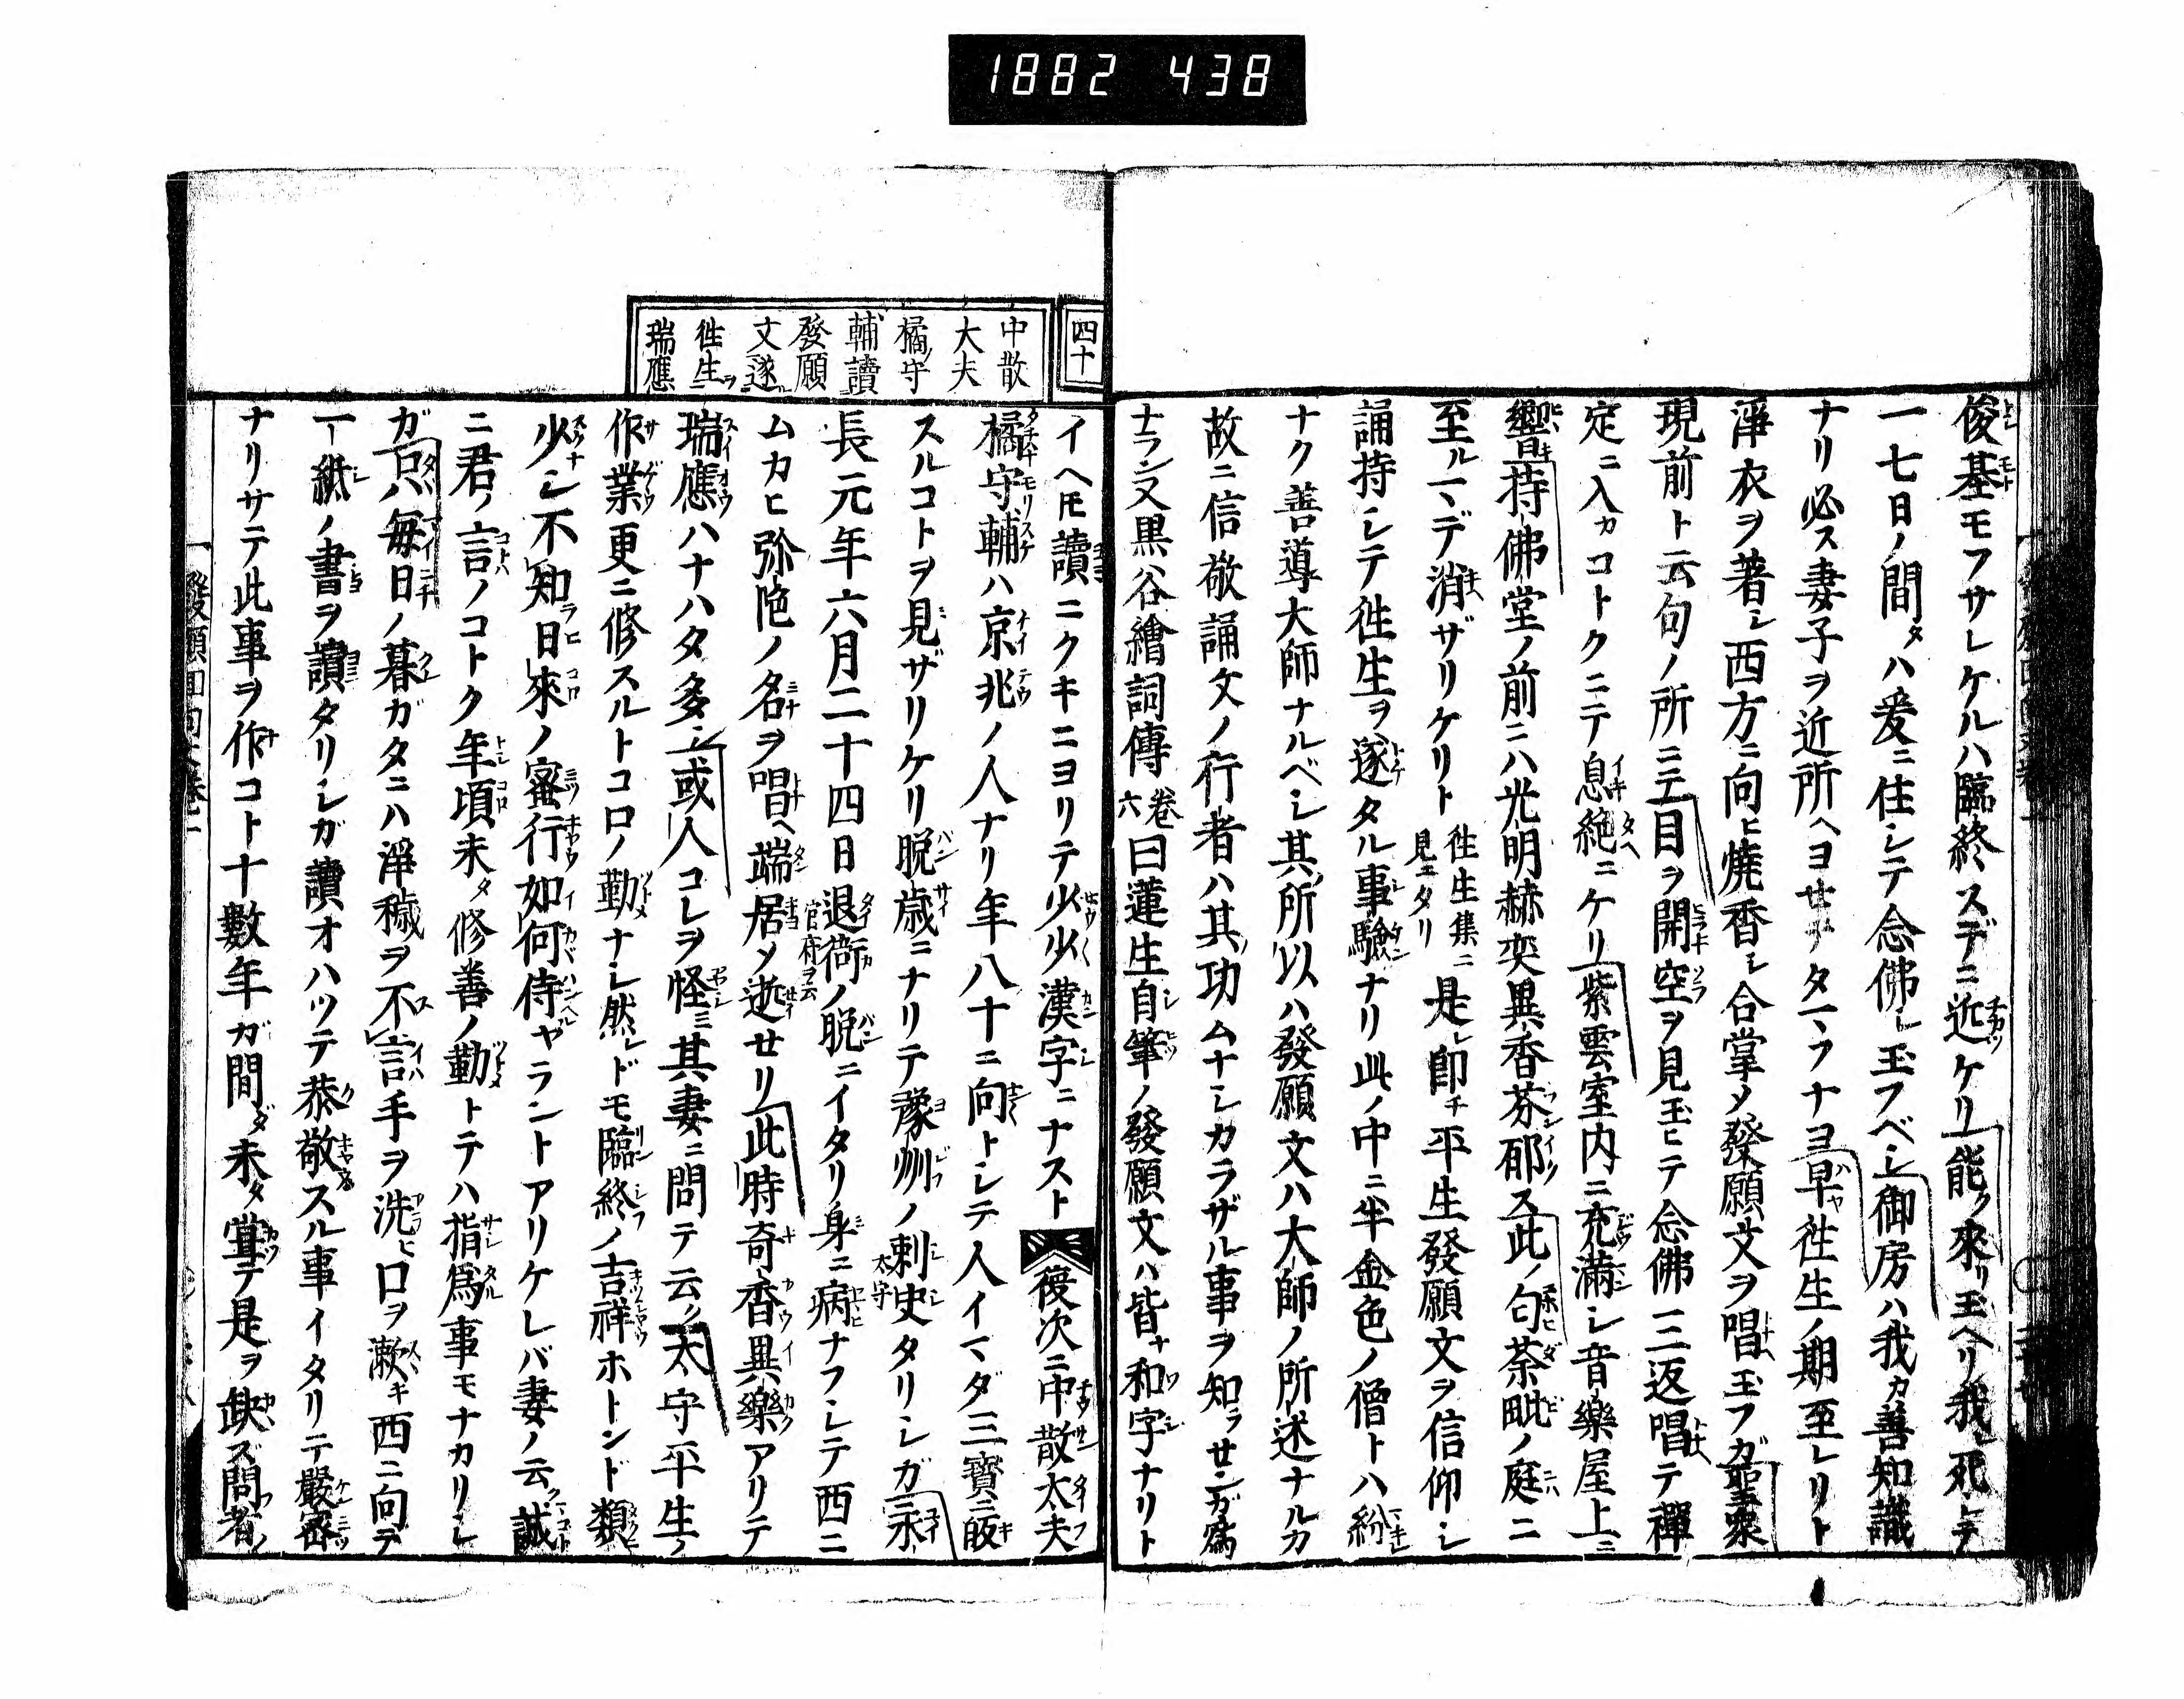 1882 438
俊基モフサレケルハ臨終スデニ近ケリ能ク來リ玉ヘリ我レ死シテ
一七日ノ間タハ爰ニ住シテ念佛シ玉フベシ御房ハ我カ善知識
ナリ必ス妻子ヲ近所ヘヨセタマフナヨ早往生ノ期至レリト
淨衣ヲ著シ西方ニ向ヒ燒香シ合掌メ發願文ヲ唱玉フガ聖衆
現前ト云句ノ所ニテ目ヲ開キ空ヲ見玉ヒテ念佛三返唱テ禪
定ニ入カコトクニテ息絶ニケリ紫雲室内ニ充滿シ音樂屋上ニ
響キ持佛堂ノ前ニハ光明赫奕異香芬郁ス此ノ句茶毗ノ庭ニ
至ルマデ消ザリケリト往生集ニ見エタリ是レ即チ平生發願文ヲ信仰シ
誦持シテ往生ヲ遂タル事驗ナリ此ノ中ニ半金色ノ僧トハ紛
ナク善導大師ナルベシ其所以ハ發願文ハ大師ノ所述ナルカ
故ニ信敬誦文ノ行者ハ其功ムナシカラザル事ヲ知ラセンガ爲
ナラン又黒谷繪詞傳卷六曰蓮生自筆ノ發願文ハ皆ナ和字ナリト
四十
中散
大夫
橘守
輔讀
發願
文遂
往生
瑞應
イヘトモ讀ニクキニヨリテ少少漢字ニナスト後次ニ中散大夫
橘守輔ハ京兆ノ人ナリ年八十ニ向トシテ人イマダ三寳ニ皈
スルコトヲ見ザリケリ脱歳ニナリテ豫州ノ刺史太守タリシガ永
長元年六月二十四日退衙官府ヲ云ノ脱ニイタリ身ニ病ナフシテ西ニ
ムカヒ弥陀ノ名ヲ唱ヘ端居メ逝セリ此時奇香異樂アリテ
瑞應ハナハタ多シ或人コレヲ怪ミ其妻ニ問テ云ク太守平生ノ
作業更ニ修スルトコロノ勤ナシ然レドモ臨終ノ吉祥ホトンド類
少シ不知日來ノ密行如何侍ヤラントアリケレバ妻ノ云ク誠
ニ君ノ言ノコトク年頃未タ修善ノ勤トテハ指爲事モナカリシ
ガ只毎日ノ暮ガタニハ淨穢ヲ不言手ヲ洗ヒ口ヲ漱キ西ニ向テ
一紙ノ書ヲ讀タリシガ讀オハツテ恭敬スル事イタリテ嚴密
ナリサテ此事ヲ作コト十數年ガ間ダ未タ掌テ是ヲ缺ズ問者ノ